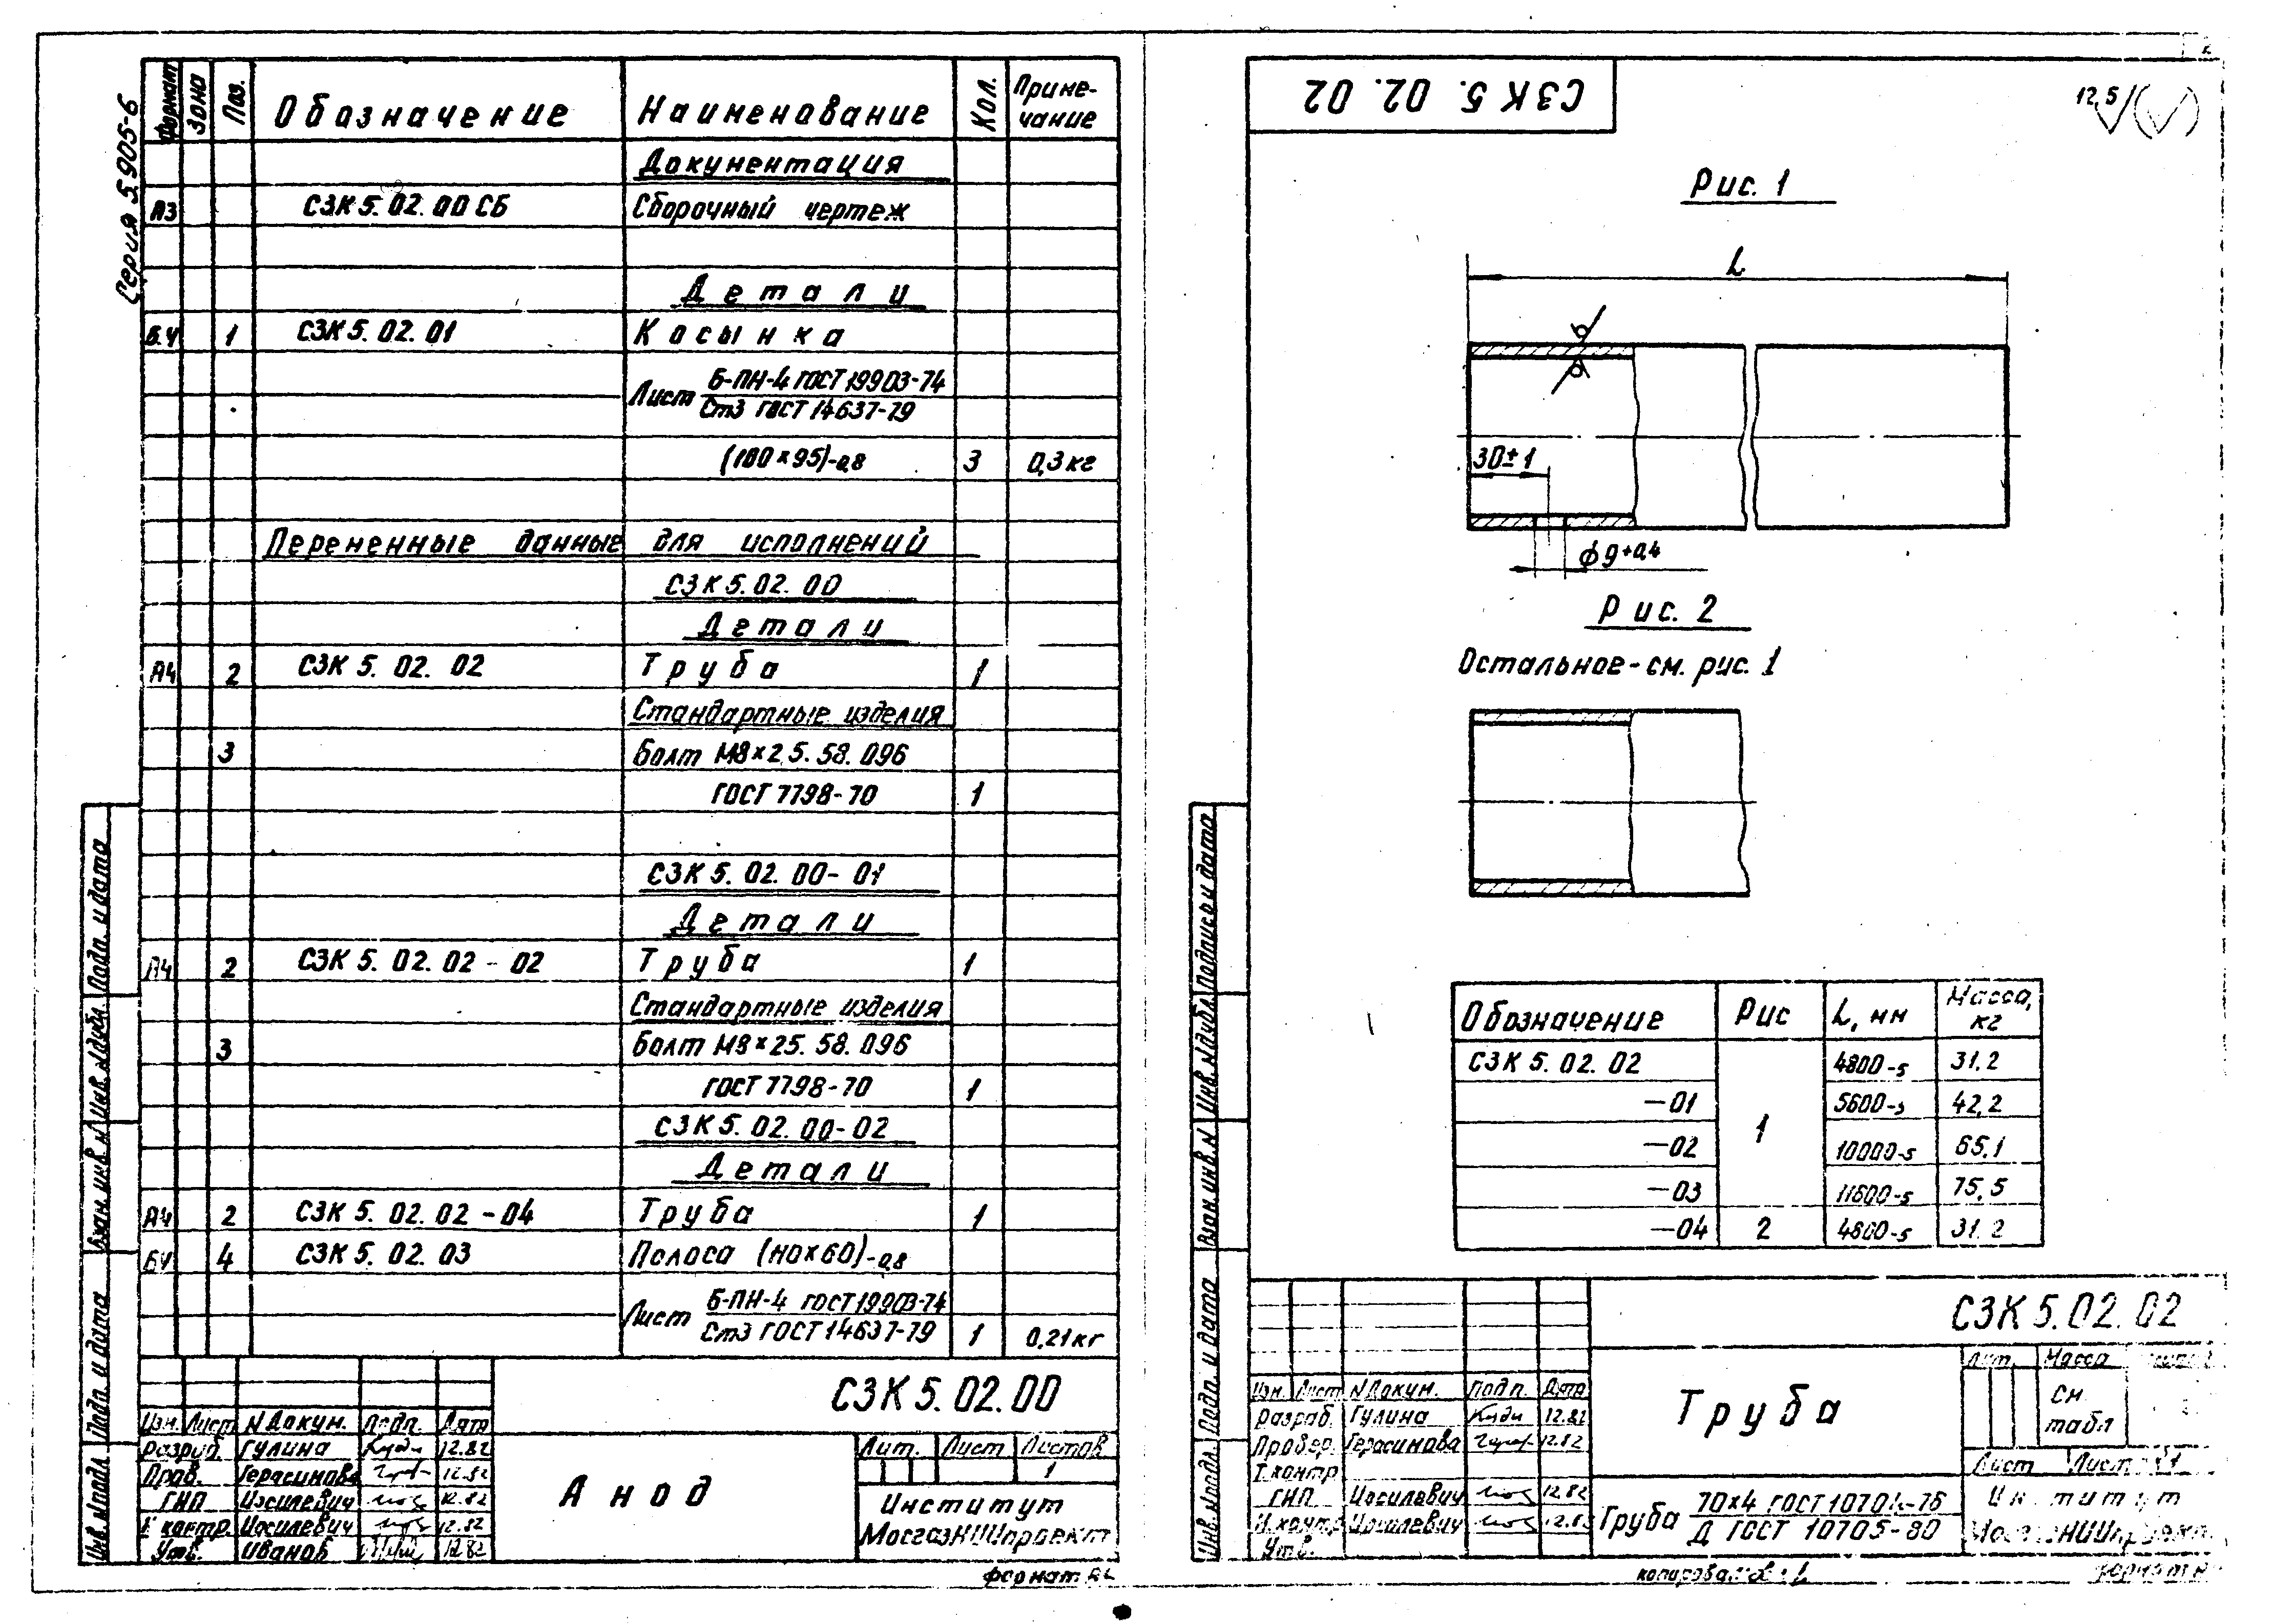 Серия 5.905-6
Формат Зона Поз. Обозначение Наименование Кол. Примечание
Документация
А3 СЗК 5. 02. 00 СБ Сборочный чертеж
Детали
Б.Ч 1 СЗК 5. 02. 01 Косынка
Лист Б-ПН-4 ГОСТ 19903-74
Ст3 ГОСТ 14637-79
(180×95)-0,8 3 0,3 кг
Переменные данные для исполнений
СЗК 5. 02. 00
Детали
А4 2 СЗК 5. 02. 02 Труба 1
Стандартные изделия
3 Болт М8×25. 58. 096
ГОСТ 7798-70 1
СЗК 5. 02. 00-01
Детали
А4 2 СЗК 5. 02. 02-02 Труба 1
Стандартные изделия
3 Болт М8×25. 58. 096
ГОСТ 7798-70 1
СЗК 5. 02. 00-02
Детали
А4 2 СЗК 5. 02. 02-04 Труба 1
БЧ 4 СЗК 5. 02. 03 Полоса (110×60)-0,8
Лист Б-ПН-4 ГОСТ 19903-74
Ст3 ГОСТ 14637-79 1 0,21 кг
СЗК 5. 02. 00
Изм. Лист N Докум. Подп. Дата
Разраб. Гулина 12.82
Пров. Герасимова 12.82
ГИП Иосилевич 12.82
Н контр. Иосилевич 12.82
Утв. Иванов 12.82
Анод
Лит. Лист Листов
1
Институт
МосгазНИИпроект
формат А4
Инв. N подл. Подп. и дата Взам. инв. N Инв. N дубл. Подп. и дата
СЗК 5. 02. 02
12,5
Рис. 1
L
30±1
φ9+0,4
Рис. 2
Остальное-см. рис. 1
Обозначение Рис L, мм Масса, кг
СЗК 5. 02. 02 1 4800-5 31.2
-01 5600-5 42,2
-02 10000-5 65,1
-03 11600-5 75,5
-04 2 4800-5 31.2
СЗК 5. 02. 02
Изм. Лист N Докум. Подп. Дата
Разраб. Гулина 12.82
Провер. Герасимова 12.82
Т. контр
ГИП Иосилевич 12.82
Н. контр. Иосилевич 12.82
Утв.
Труба
Лит. Масса
См табл
Лист Листов 1
Труба 70×4 ГОСТ 10704-76
Д ГОСТ 10705-80
Институт
МосгазНИИпроект
копировал
формат А4
Инв. N подл. Подп. и дата Взам. инв. N Инв. N дубл. Подпись и дата